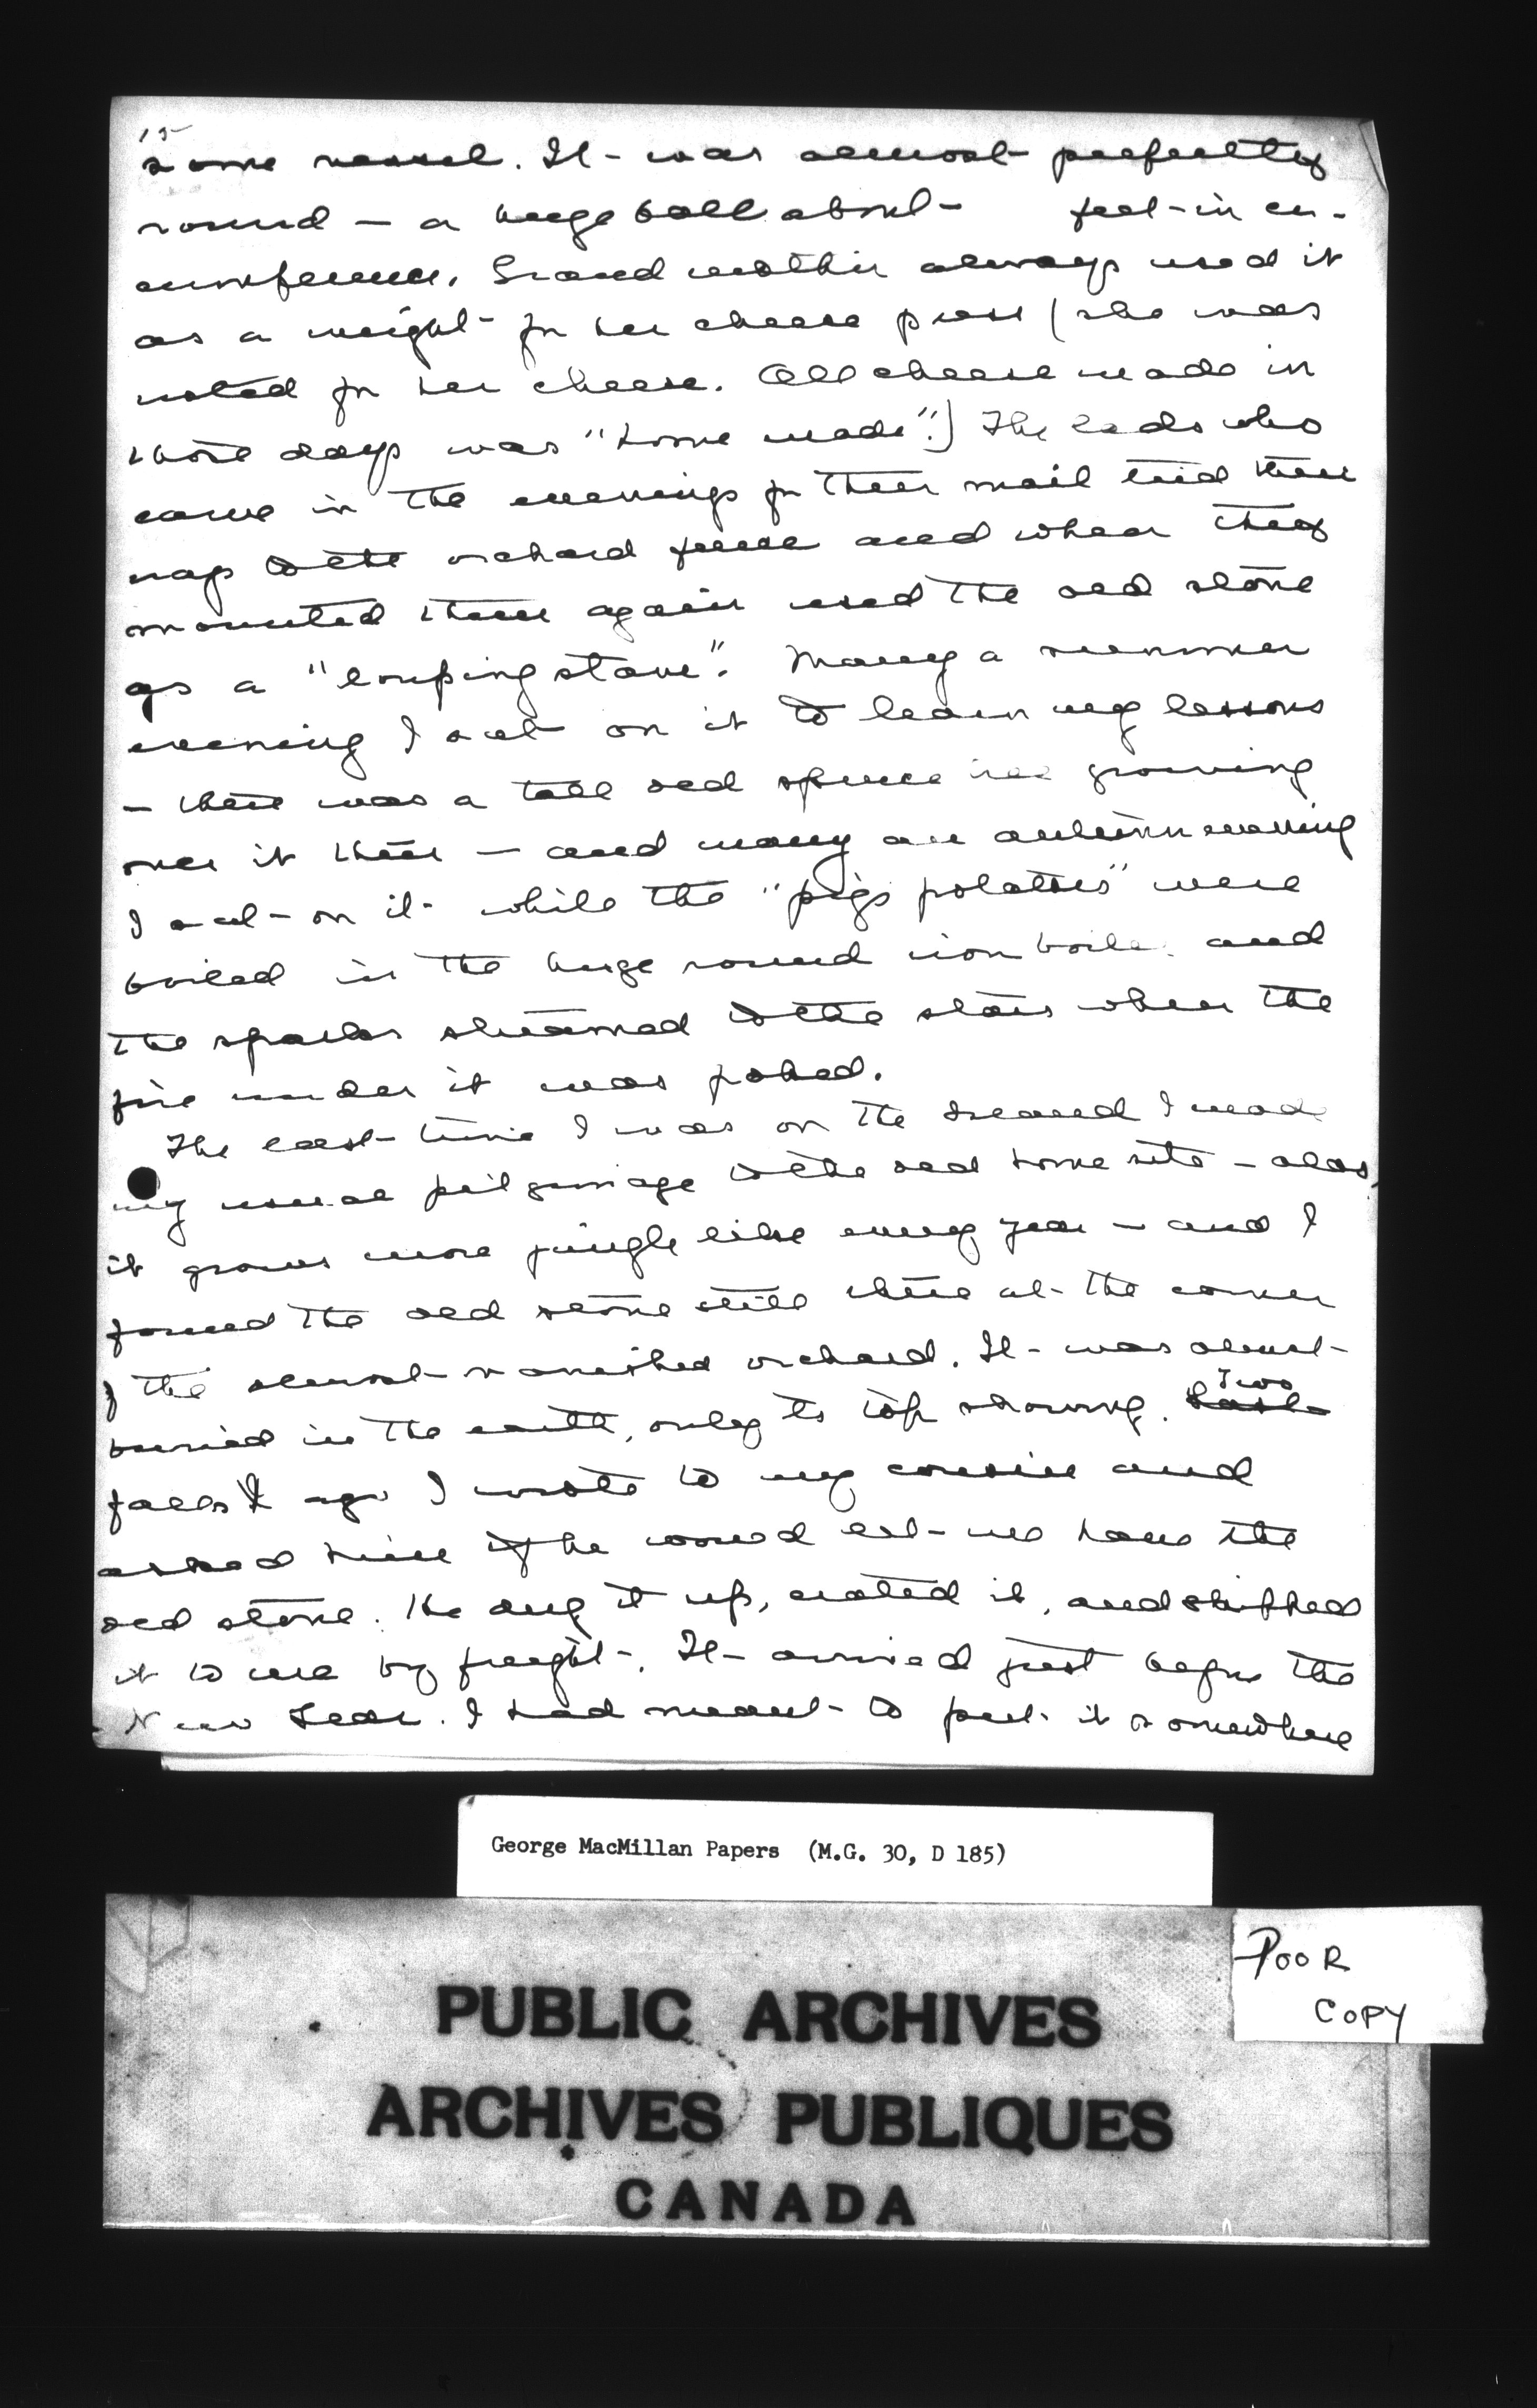 15
some vessel. It was almost perfectly
round – a huge ball about      feet in cir-
cumference. Grandmother always used it
as a weight for her cheese press (she was
noted for her cheese. All cheese made in
those days was "home made".) The lads who
came in the evenings for their mail tied their
nags to the orchard fence and when they
mounted them again used the old stone
as a "louping stane". Many a summer
evening I sat on it to learn my lessons
– there was a tall old spruce tree growing
over it then – and many an autumn evening
I sat on it while the "pigs potatoes" were
boiled in the huge round iron boiler and
the sparks streamed to the stars when the
fire under it was poked.
The last time I was on the Island I made
my usual pilgrimage to the old home site – alas,
it grows more jungle like every year – and I
found the old stone still there at the corner
of the almost vanished orchard. It was almost
buried in the earth, only its top showing. Last Two
falls ago I wrote to my cousin and
asked him if he would let me have the
old stone. He dug it up, crated it, and shipped
it to me by freight. It arrived just before the
New Year. I had meant to put it somewhere
George MacMillan Papers (M.G. 30, D 185)
POOR
COPY
PUBLIC ARCHIVES
ARCHIVES PUBLIQUES
CANADA